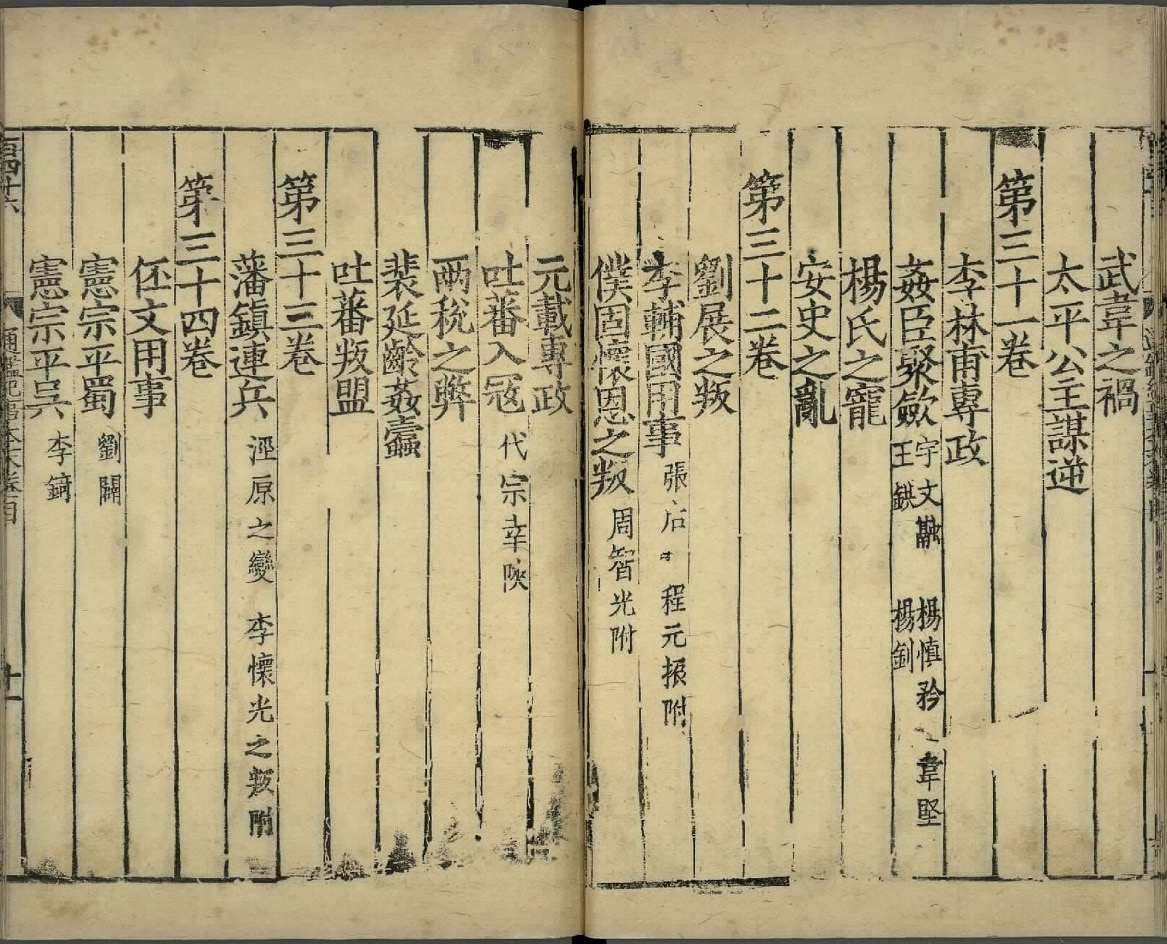 武韋之禍
太平公主謀逆
第三十一卷
李林甫專政
姦臣聚歛 宇文融 楊慎矜 韋堅 王鉷 楊釗
楊氏之寵
安史之亂
第三十二卷
劉展之叛
李輔國用事 張后 程元振附
僕固懷恩之叛 周智光附
元載專政
吐蕃入冦 代宗幸陝
兩稅之弊
裴延齡姦蠹
吐蕃叛盟
第三十三卷
藩鎮連兵 涇原之變 李懷光之叛附
第三十四卷
伾文用事
憲宗平蜀 劉闢
憲宗平吳 李錡
通鑑紀事本末卷目
十一